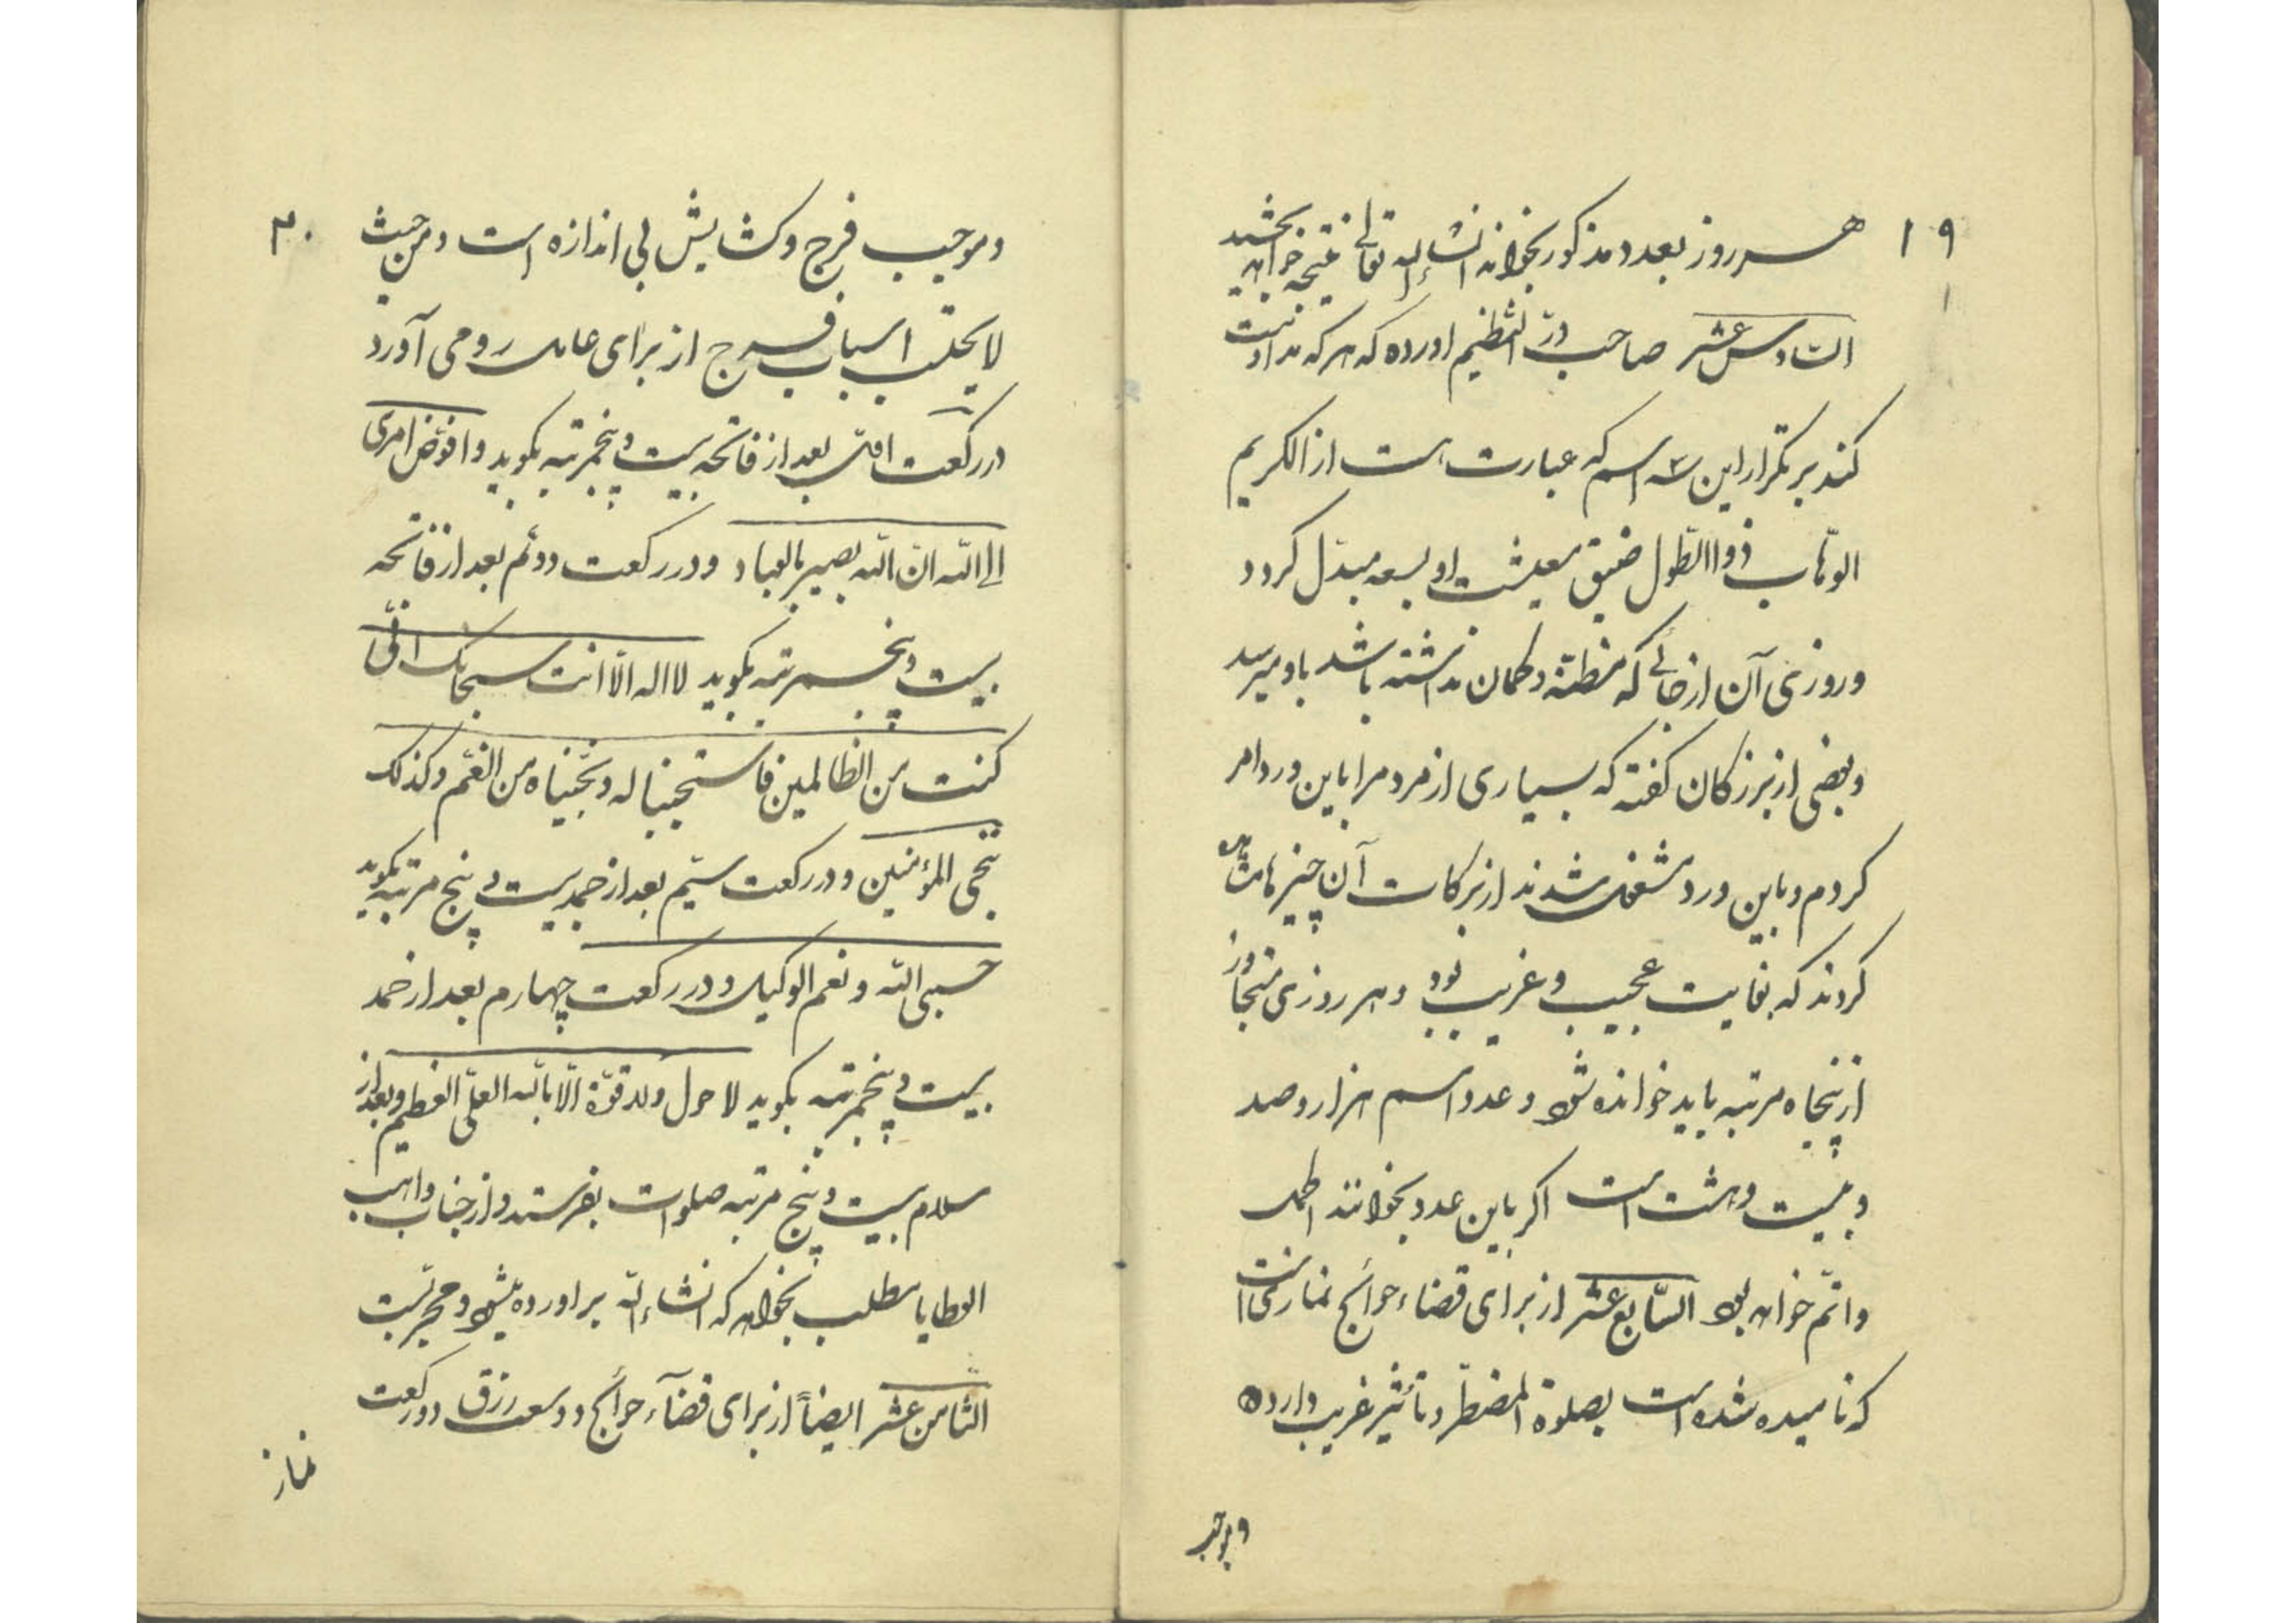 ۱۹
هر روز بعدد مذکور بخواند انشاء الله تعالی نتیجه خواهد بخشید
السادس عشر صاحب درّ النظیم اورده که هر که مداومت
کند بر تکرار این سه اسم که عبارت است از الکریم
الوهّاب ذواالطول ضیق معیشت او بسعه مبدّل گردد
و روزی آن از جائی که مظنّه و گمان نداشته باشد باو میرسد
و بعضی از بزرگان گفته که بسیاری از مردم را باین ورد امر
کردم و باین ورد مشغول شدند از برکات آن چیزها مشاهده
کردند که بغایت عجیب و غریب بود و هر روزی متجاوز
از پنجاه مرتبه باید خوانده شود و عدد اسم هزار و صد
و بیست و هشت است اگر باین عدد بخوانند اکمل
و اتمّ خواهد بود السّابع عشر از برای قضاء حوائج نمازی است
که نامیده شده است بصلوة المضطرّ و تأثیر غریب دارد
و موجب
۲۰
و موجب فرج و گشایش بی اندازه است و من حیث
لا یحتسب اسباب فرج از برای عامل رو می آورد
در رکعت اوّل بعد از فاتحه بیست و پنجمرتبه بگوید و افوّض امری
الی الله انّ الله بصیر بالعباد و در رکعت دوّم بعد از فاتحه
بیست و پنجمرتبه بگوید لا اله الّا انت سبحانک انّی
کنت من الظالمین فاستجبنا له و نجّیناه من الغمّ و کذلک
ننجی المؤمنین و در رکعت سیّم بعد از حمد بیست و پنج مرتبه بگوید
حسبی الله و نعم الوکیل و در رکعت چهارم بعد از حمد
بیست و پنجمرتبه بگوید لا حول و لا قوّة الّا بالله العلیّ العظیم و بعد از
سلام بیست و پنج مرتبه صلوات بفرستد و از جناب واهب
العطایا مطلب بخواهد که انشاء الله براورده میشود و مجربست
الثامن عشر ایضاً از برای قضآء حوائج و وسعت رزق دو رکعت
نماز